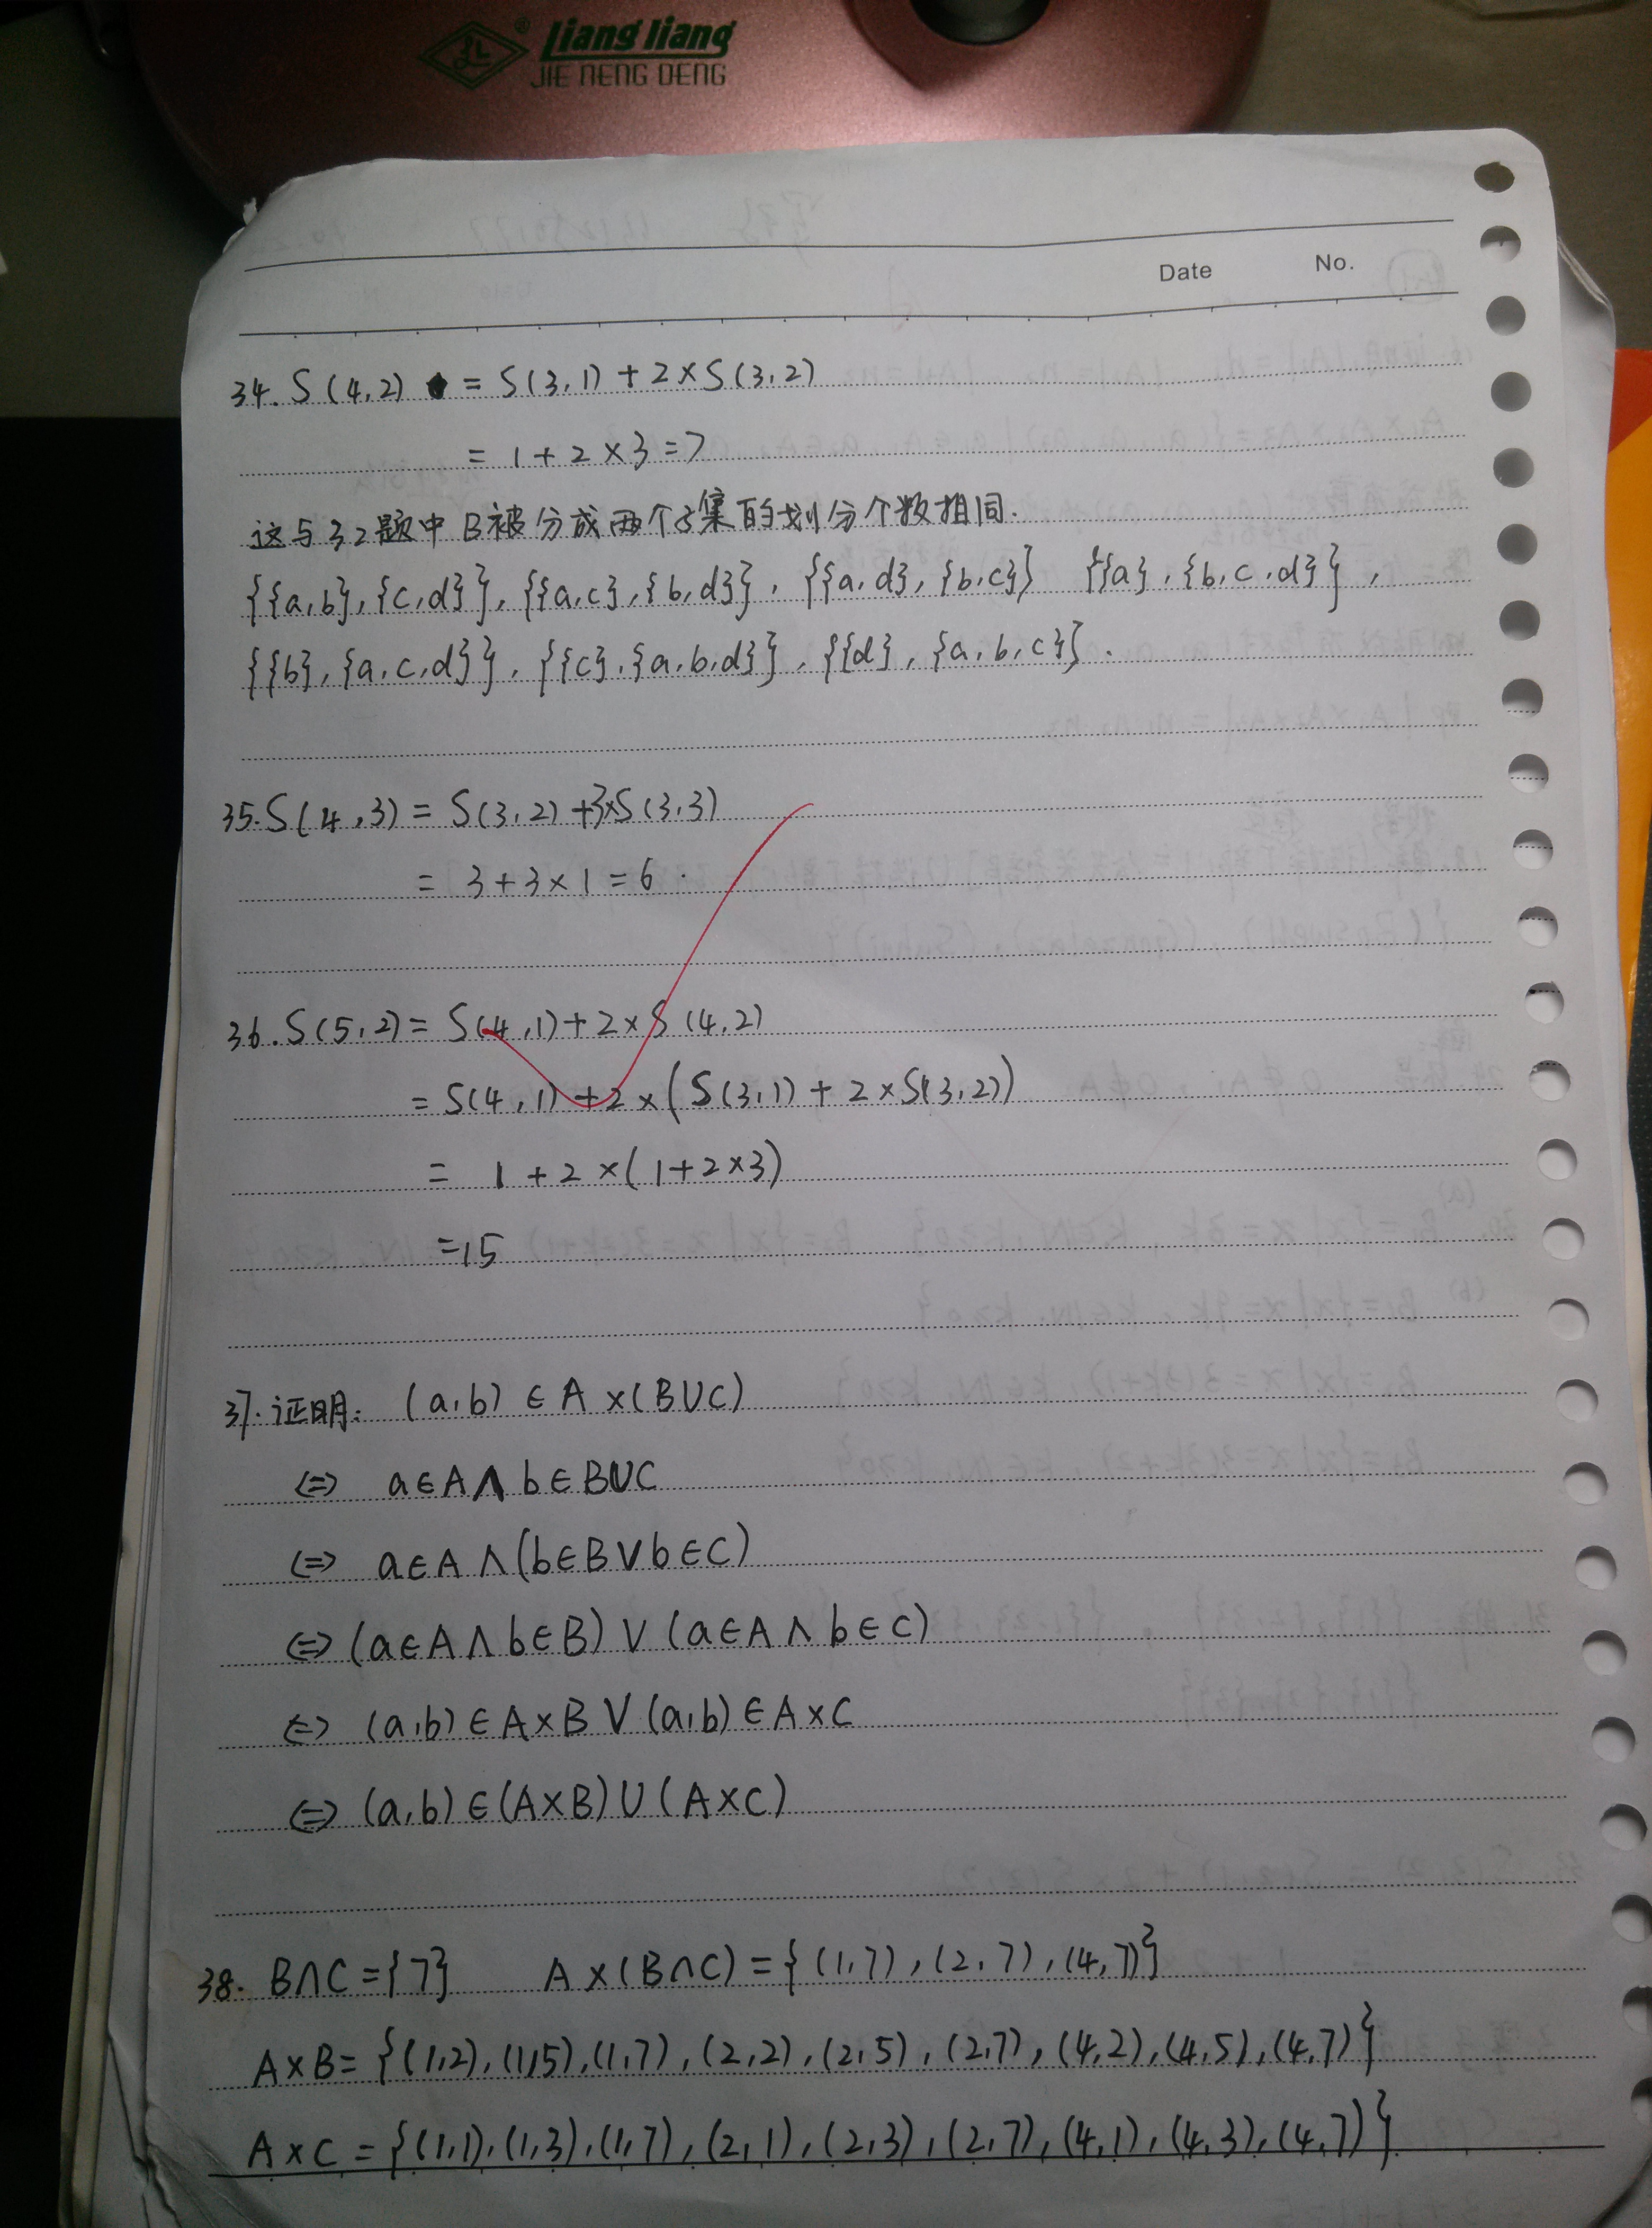 Liang liang
JIE NENG DENG
Date No.
34. S(4,2) = S(3,1) + 2×S(3,2)
= 1 + 2 × 3 = 7
这与32题中B被分成两个子集的划分个数相同.
{{a,b},{c,d}}, {{a,c},{b,d}}, {{a,d},{b,c}} {{a},{b,c,d}},
{{b},{a,c,d}}, {{c},{a,b,d}}, {{d},{a,b,c}}.
35. S(4,3) = S(3,2) + 3×S(3,3)
= 3 + 3 × 1 = 6.
36. S(5,2) = S(4,1) + 2 × S(4,2)
= S(4,1) + 2 × (S(3,1) + 2 × S(3,2))
= 1 + 2 × (1 + 2 × 3)
= 15
37. 证明: (a,b) ∈ A × (B∪C)
⇔ a∈A ∧ b∈B∪C
⇔ a∈A ∧ (b∈B ∨ b∈C)
⇔ (a∈A ∧ b∈B) ∨ (a∈A ∧ b∈C)
⇔ (a,b) ∈ A×B ∨ (a,b) ∈ A×C
⇔ (a,b) ∈ (A×B) ∪ (A×C)
38. B∩C = {7} A × (B∩C) = {(1,7), (2,7), (4,7)}
A×B = {(1,2), (1,5), (1,7), (2,2), (2,5), (2,7), (4,2), (4,5), (4,7)}
A×C = {(1,1), (1,3), (1,7), (2,1), (2,3), (2,7), (4,1), (4,3), (4,7)}